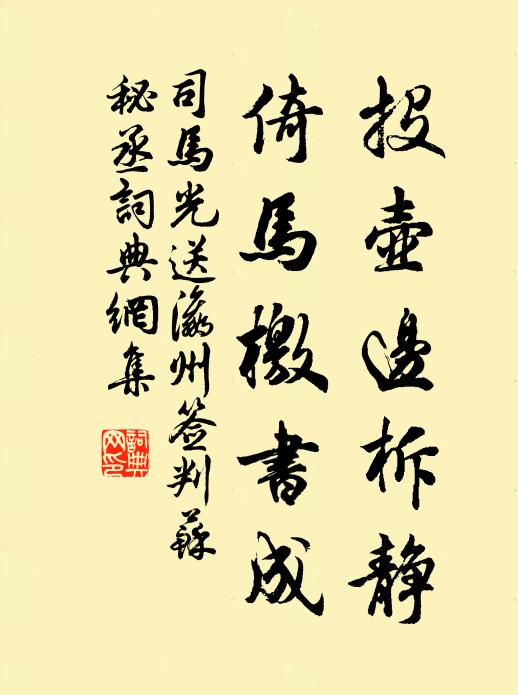 投壺邊柝靜
倚馬檄書成
司馬光送瀛州簽判蘇
秘丞詞典網集
詞典网印